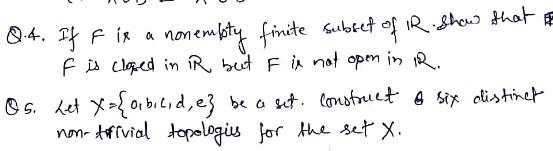 Q.4. If F is a nonempty finite subset of ℝ. Show that
F is closed in ℝ but F is not open in ℝ.
Q5. Let X={a,b,c,d,e} be a set. Construct six distinct
non-trivial topologies for the set X.